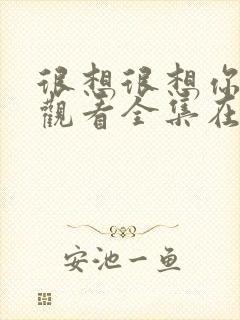 很想很想你
觀看全集在
安池一鱼